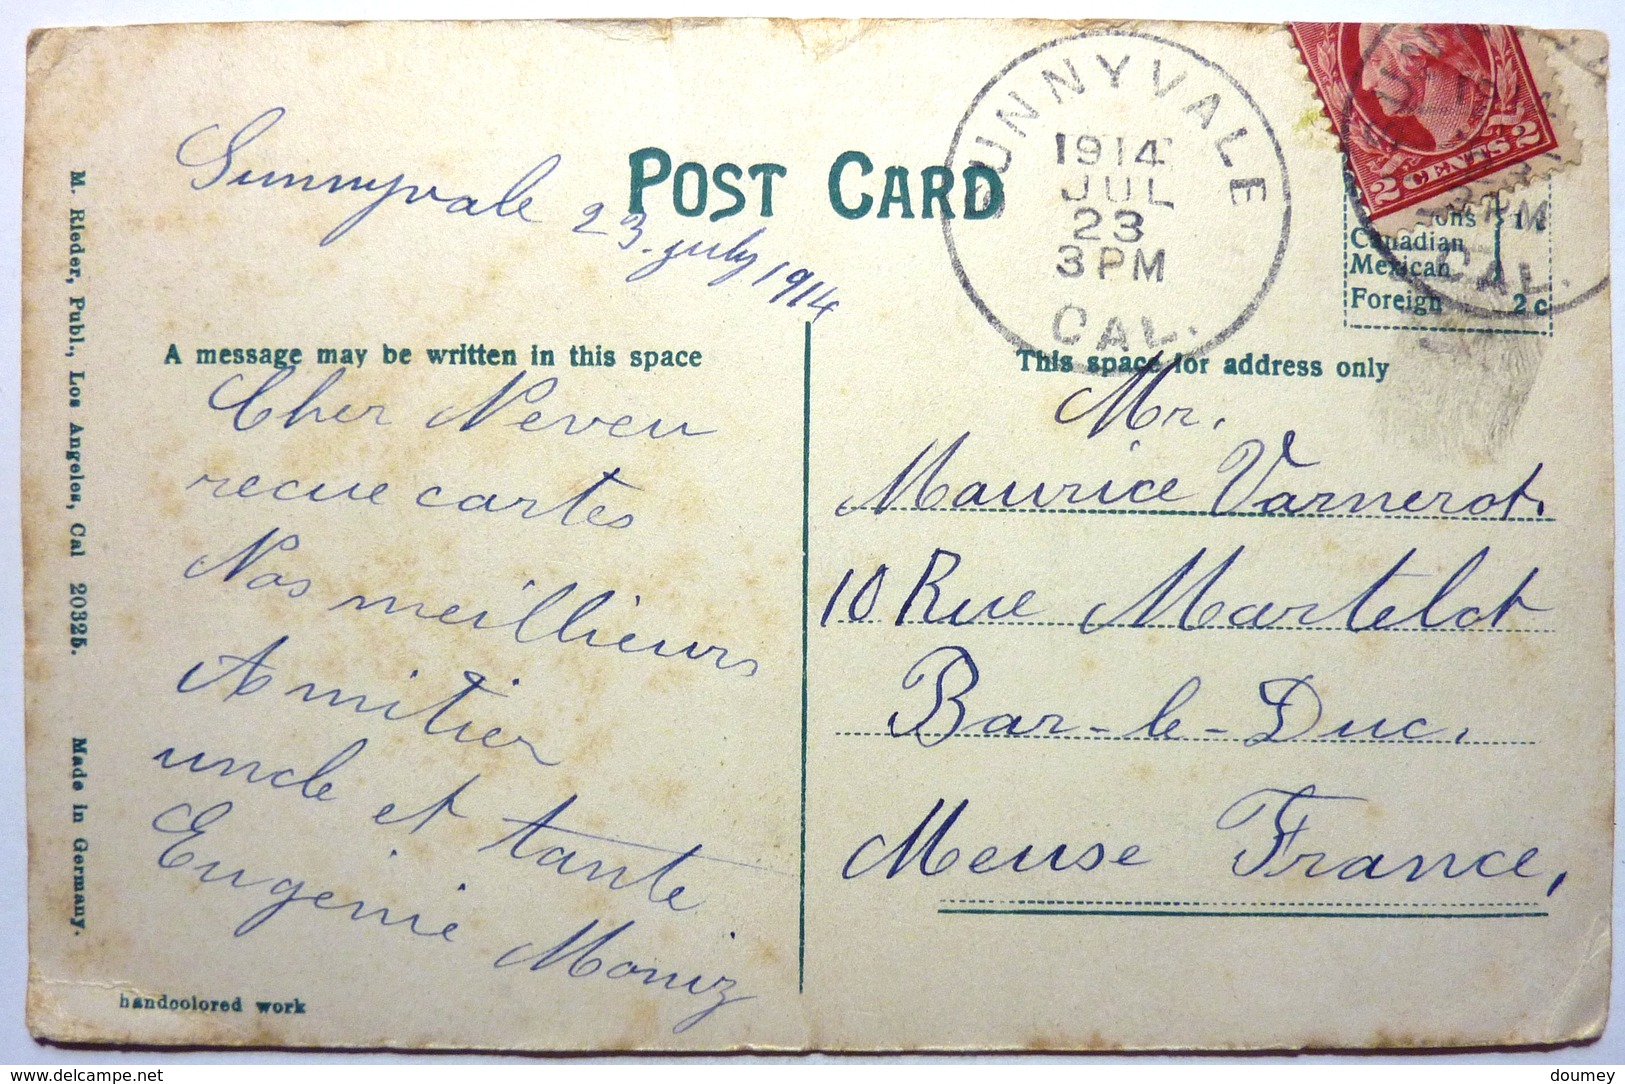 POST CARD
SUNNYVALE
1914
JUL
23
3 PM
CAL.
2
2
CAL.
1
Canadian
Mexican
Foreign 2c
Sunnyvale 23. july 1914
A message may be written in this space
Cher Neveu
recue cartes
Nos meillieurs
Amitier
uncle et tante
Eugenie Moniz
This space for address only
Mr.
Maurice Varnerot.
10 Rue Martelot
Bar-le-Duc.
Meuse France,
M. Rieder, Publ., Los Angeles, Cal 20325. Made in Germany.
handcolored work
delcampe.net
doumey